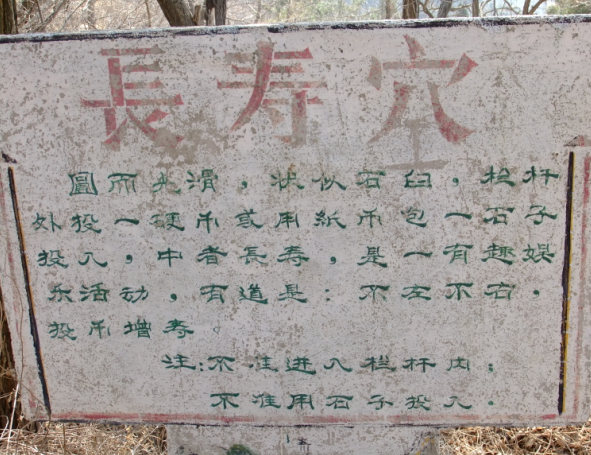 長寿穴
圓而光滑，状似石臼，栏杆
外投一硬币或用紙币包一石子
投入，中者長寿，是一有趣娱
乐活动，有道是：不左不右，
投币增寿
注:不准进入栏杆内；
不准用石子投入.